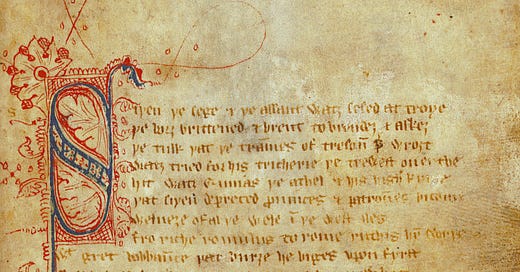 Siþen þe sege & þe assaut watz sesed at troye
þe borȝ brittened & brent to brondeȝ & askez
þe tulk þat þe trammes of tresoun þ̲ wroȝt
Watz tried for his tricherie þe trewest on erthe
Hit watz Ennias þe athel & his highe kynde
þat siþen depreced prouinces & patrounes bicome
Welneȝe of al þe wele ī þe west iles
fro riche romulus to rome ricchis hȳ swyþe
gret bobbaunce þat burȝe he biges vpon fyrst